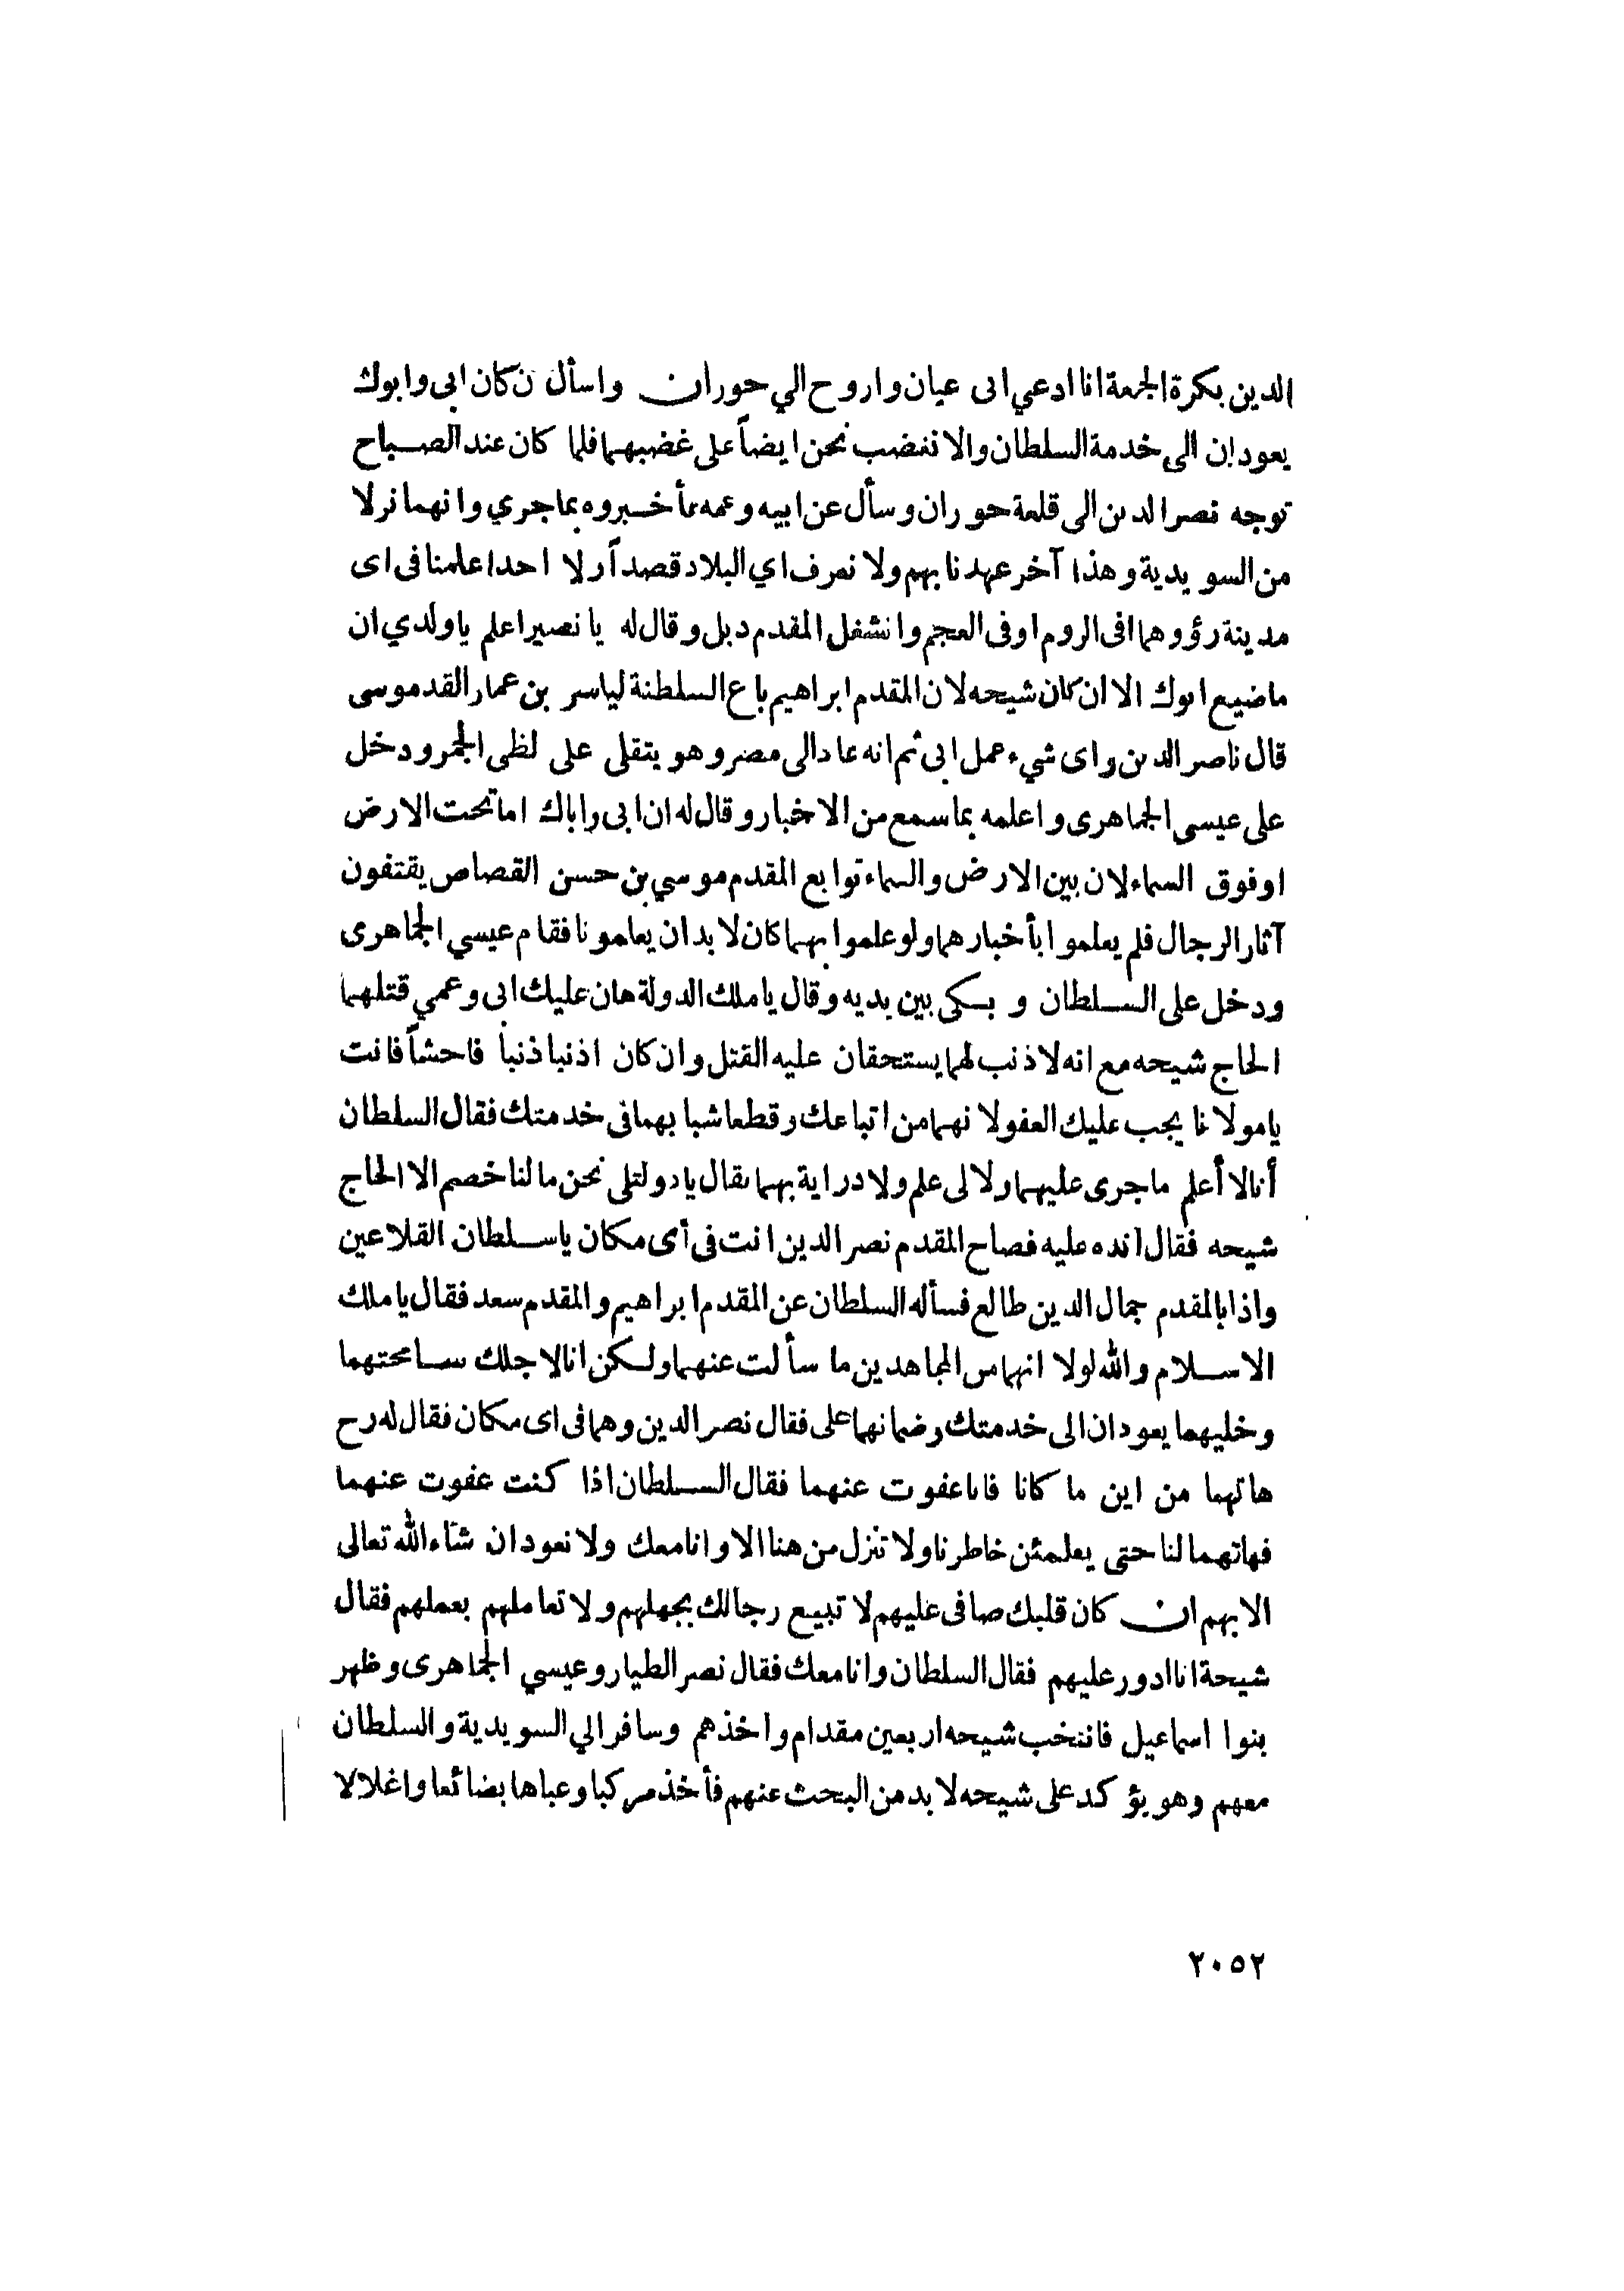 الدين بكرة الجمعة انا ادعي انى عيان واروح الي حوران واسأل ن كان ابى وابوك
يعودان الى خدمة السلطان والا نغضب نحن ايضاً على غضبهما فلما كان عند الصباح
توجه نصر الدين الى قلعة حوران وسأل عن ابيه وعمه فأخبروه بما جري وانهما نزلا
من السويدية وهذا آخر عهدنا بهم ولا نعرف اي البلاد قصداً ولا احدا علمنا فى اى
مدينة رؤوهما افى الروم او فى العجم وانشغل المقدم دبل وقال له يا نصير اعلم ياولدي ان
ماضيع ابوك الا ان كان شيحه لان المقدم ابراهيم باع السلطنة لياسر بن عمار القدموسى
قال ناصر الدين واى شيء عمل ابى ثم انه عاد الى مصر وهو يتقلى على لظى الجمر ودخل
على عيسى الجماهرى واعلمه بما سمع من الاخبار وقال له ان ابى واباك اما تحت الارض
او فوق السماء لان بين الارض والسماء توابع المقدم موسي بن حسن القصاص يقتفون
آثار الرجال فلم يعلموا بأخبارهما ولو علموا بهما كان لا بد ان يعلمونا فقام عيسي الجماهرى
ودخل على السلطان و بكى بين يديه وقال ياملك الدولة هان عليك ابى وعمي قتلهما
الحاج شيحه مع انه لا ذنب لهما يستحقان عليه القتل وان كان اذنبا ذنباً فاحشاً فانت
يامولانا يجب عليك العفو لانهما من اتباعك وقطعا شبابهما فى خدمتك فقال السلطان
أنا لا أعلم ماجرى عليهما ولا لى علم ولا دراية بهما فقال يادولتلى نحن مالنا خصم الا الحاج
شيحه فقال انده عليه فصاح المقدم نصر الدين انت فى أى مكان ياسلطان القلاعين
واذا بالمقدم جمال الدين طالع فسأله السلطان عن المقدم ابراهيم والمقدم سعد فقال ياملك
الاسلام والله لولا انهما من المجاهدين ما سألت عنهما ولكن انا لاجلك سامحتهما
وخليهما يعودان الى خدمتك وضمانهما على فقال نصر الدين وهما فى اى مكان فقال له رح
هاتهما من اين ما كانا فانا عفوت عنهما فقال السلطان اذا كنت عفوت عنهما
فهاتهما لنا حتى يطمئن خاطرنا ولا تنزل من هنا الا وانا معك ولا نعود ان شاء الله تعالى
الا بهم ان كان قلبك صافى عليهم لا تبيع رجالك بجهلهم ولا تعاملهم بعملهم فقال
شيحة انا ادور عليهم فقال السلطان وانا معك فقال نصر الطيار وعيسي الجماهرى وظهر
بنوا اسماعيل فانتخب شيحه اربعين مقدام واخذهم وسافر الي السويدية والسلطان
معهم وهو يؤكد على شيحه لا بد من البحث عنهم فأخذ مركبا وعباها بضائعا واغلالا
٢٠٥٢